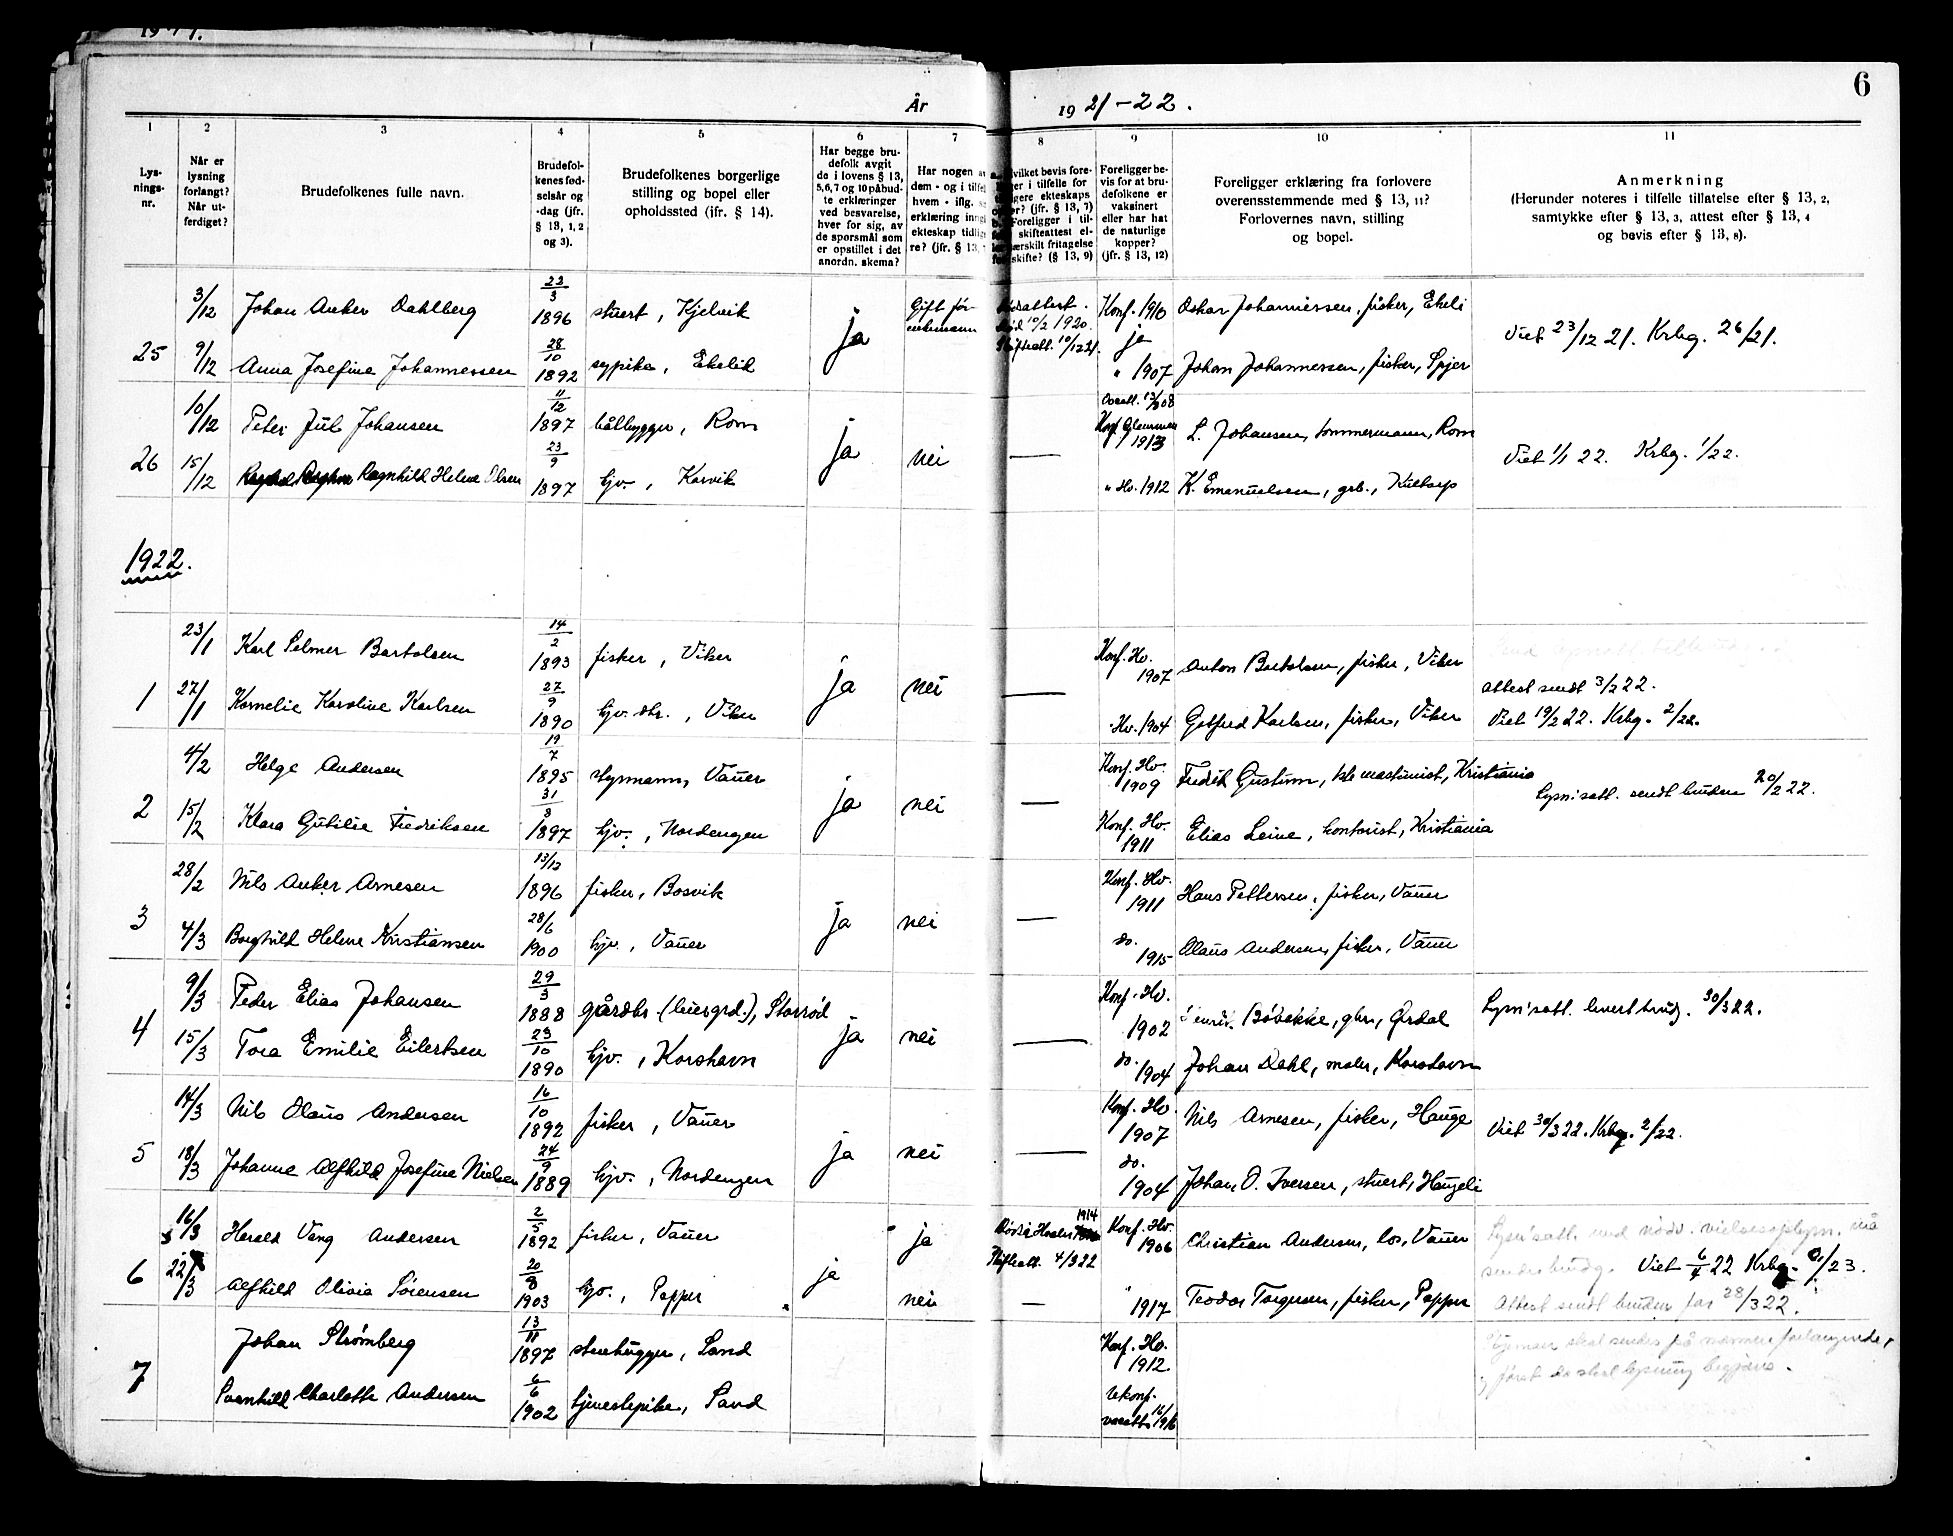 6
År 1921-22.
1 2 3 4 5 6 7 8 9 10 11
Lysningsnr.
Når er lysning forlangt? Når utferdiget?
Brudefolkenes fulle navn.
Brudefolkenes fødselsår og -dag (jfr. § 13, 1, 2 og 3).
Brudefolkenes borgerlige stilling og bopel eller opholdssted (jfr. § 14).
Har begge brudefolk avgitt de i lovens § 13, 5, 6, 7 og 10 påbudte erklæringer ved besvarelse, hver for sig, av de spørsmål som er opstillet i det anordn. skema?
Har nogen
dem - og i tilfel
hvem - iflg.
erklæring inng
ekteskap tidlig
re? (jfr. § 13,
vilket bevis fore-
ger i tilfelle for
ligere ekteskaps
er? (jfr. § 13, 7)
Foreligger i til-
skifteattest el-
særskilt fritagelse
skifte? (§ 13, 9)
Foreligger bevis for at brudefolkene er vaksinert eller har hat de naturlige kopper? (jfr. § 13, 12)
Foreligger erklæring fra forlovere overensstemmende med § 13, 11? Forlovernes navn, stilling og bopel.
Anmerkning
(Herunder noteres i tilfelle tillatelse efter § 13, 2, samtykke efter § 13, 3, attest efter § 13, 4 og bevis efter § 13, 8).
3/12 Johan Anker Dahlberg 22/3 1896 stuert, Kjelvik ja Gift før Konf. 1910 Oskar Johannessen, fisker, Ekeli
Dødsattest. Død 10/2 1920. Skifteatt. 10/12 21. ja
Viet 23/12 21. Krbg. 26/21.
25 9/12 Anna Josefine Johannessen 28/10 1892 sypike, Ekelid " 1907 Johan Johannessen, fisker, Spjer
10/12 Peter Jul Johansen 11/12 1897 båtbygger, Rom ja nei — 1913 L. Johansen, tømmermann, Rom
Viet 1/1 22. Krbg. 1/22.
26 15/12 Ragnhild Helene Olsen 23/9 1897 tjv., Korvik " Hv. 1912 K. Emanuelsen, grb., Kultorp
1922.
23/1 Karl Selmer Bartolsen 14/2 1893 fisker, Viker ja nei — Konf. Hv. 1907 Anton Bartolsen, fisker, Viker
attest sendt 3/2 22.
1 27/1 Kornelie Karoline Karlsen 27/9 1890 tjv. dtr., Viker Hv. 1904 Gotfred Karlsen, fisker, Viker Viet 19/2 22. Krbg. 2/22.
4/2 Helge Andersen 19/7 1895 styrmann, Vauer ja nei — Konf. Hv. 1909 Fredik Gustum, maskinist, Kristiania
Lysn.att. sendt bruden 20/2 22.
2 15/2 Klara Gutilie Fredriksen 31/3 1897 tjv., Nordengen Konf. Hv. 1911 Elias Leine, kontorist, Kristiania
28/2 Nils Anker Arnesen 13/12 1896 fisker, Bosvik ja nei — Konf. Hv. 1911 Hans Pettersen, fisker, Vauer
3 4/3 Borghild Helene Kristiansen 28/6 1900 tjv., Vauer do. 1915 Olaus Andersen, fisker, Vauer
9/3 Peder Elias Johansen 29/3 1888 gårdbr. (leiegrd.), Storrød ja nei — Konf. Hv. 1902 Bøbakke, gbr., Ørdal Lysn.att. levert brudg. 30/3 22.
4 15/3 Tora Emilie Eilertsen 23/10 1890 tjv., Korshavn do. 1904 Johan Dahl, maler, Korshavn
14/3 Nils Olaus Andersen 16/10 1892 fisker, Vauer ja nei — Konf. Hv. 1907 Nils Arnesen, fisker, Hauge
Viet 30/3 22. Krbg. 2/22.
5 18/3 Johanne Alfhild Josefine Nielsen 24/9 1889 tjv., Nordengen do. 1904 Johan O. Iversen, stuert, Haugeli
16/3 Harald Vang Andersen 2/5 1892 fisker, Vauer ja Død i Hvaler 1914 Skifteatt. 4/3 22 Konf. Hv. 1906 Christian Andersen, los, Vauer
Lysn.att. med nødv. vielsesoplysn. må
sendes brudg. Viet 6/4 22 Krbg. /23.
6 22/3 Alfhild Olivia Sørensen 20/8 1903 tjv., Papper ja nei — " 1917 Teodor Torgersen, fisker, Papper Attest sendt bruden far 28/3 22.
Johan Strømberg 13/11 1897 stenhugger, Sand Konf. Hv. 1912.
skal sendes på nærmere forlangende,
først da skal lysning begjæres.
7 Svanhild Charlotte Andersen 6/6 1902 tjenestepike, Sand Ukonf. vaksatt. 16/ 1916